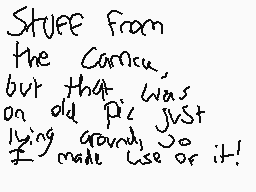 Stuff from
the Comic,
but that was
an old pic just
lying around, so
I made use of it!